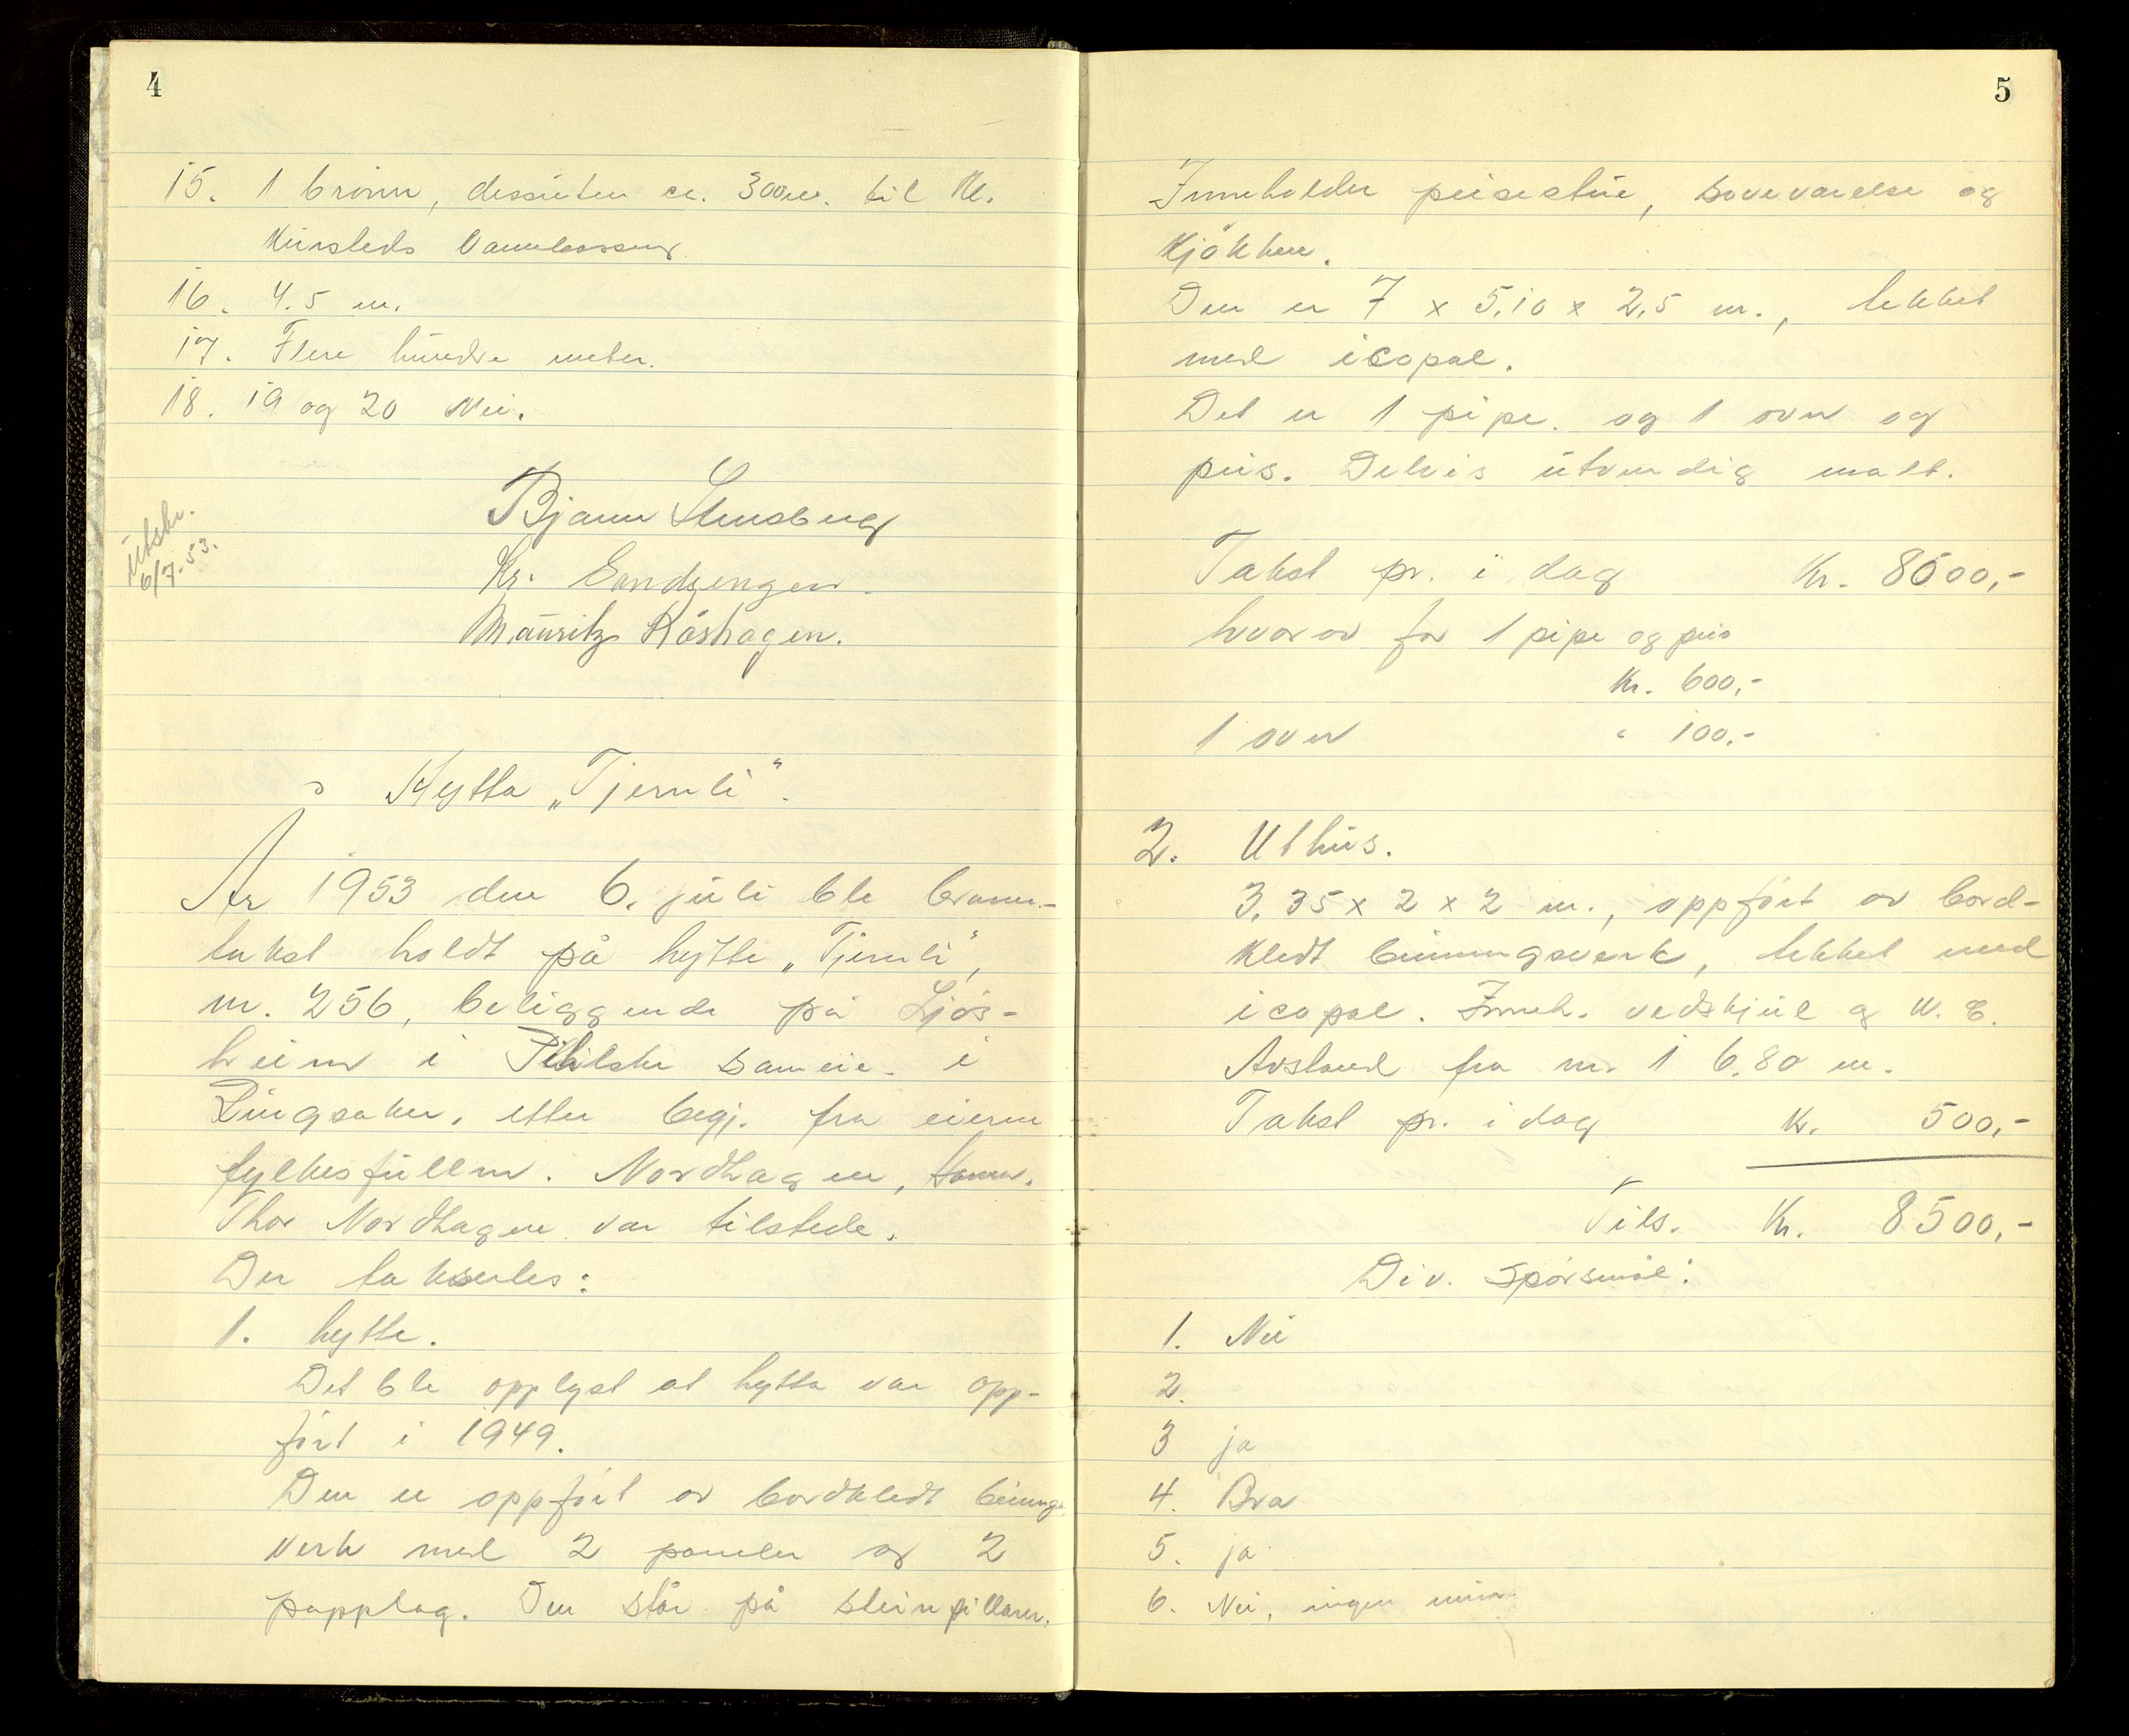 4
15. 1 brønn, dessuten ca. 300 m. til Kl.
Vannbasseng
16. 4.5 m.
17. Flere hundre meter.
18. 19 og 20 Nei.
Utskr.
6/7-53.
Bjarne Stensberg
Kr. Sandsengen.
Mauritz Råshagen.
Hytta „Tjernli".
År 1953 den 6. juli ble brann-
takst holdt på hytte „Tjernli",
nr. 256, beliggende på Ljøs-
heim i sameie. i
Ringsaker, etter begj. fra eieren
fylkesfullm. Nordhagen, Hamar.
Thor Nordhagen var tilstede.
Der taksertes:
1. hytte.
Det ble opplyst at hytta var opp-
ført i 1949.
Den er oppført av bordkledt binnings
verk med 2 paneler og 2
papplag. Den står på steinpillarer.
5
Inneholder peisestue, soveværelse og
Kjøkken.
Den er 7 x 5,10 x 2,5 m., tekket
med icopal.
Det er 1 pipe. og 1 ovn og
peis. Delvis utvendig malt.
Takst pr. i dag Kr. 8000,-
hvorav for 1 pipe og peis
Kr. 600,-
1 ovn " 100.-
2. Uthus.
3.35 x 2 x 2 m., oppført av bord-
kledt binningsverk, tekket med
icopal. Inneh. vedskjul og W.C.
Avstand fra nr. 1 6.80 m.
Takst pr. i dag Kr. 500,-
Tils. Kr. 8500,-
Div. spørsmål:
1. Nei
2.
3 ja
4. Bra
5. ja
6. Nei, ingen